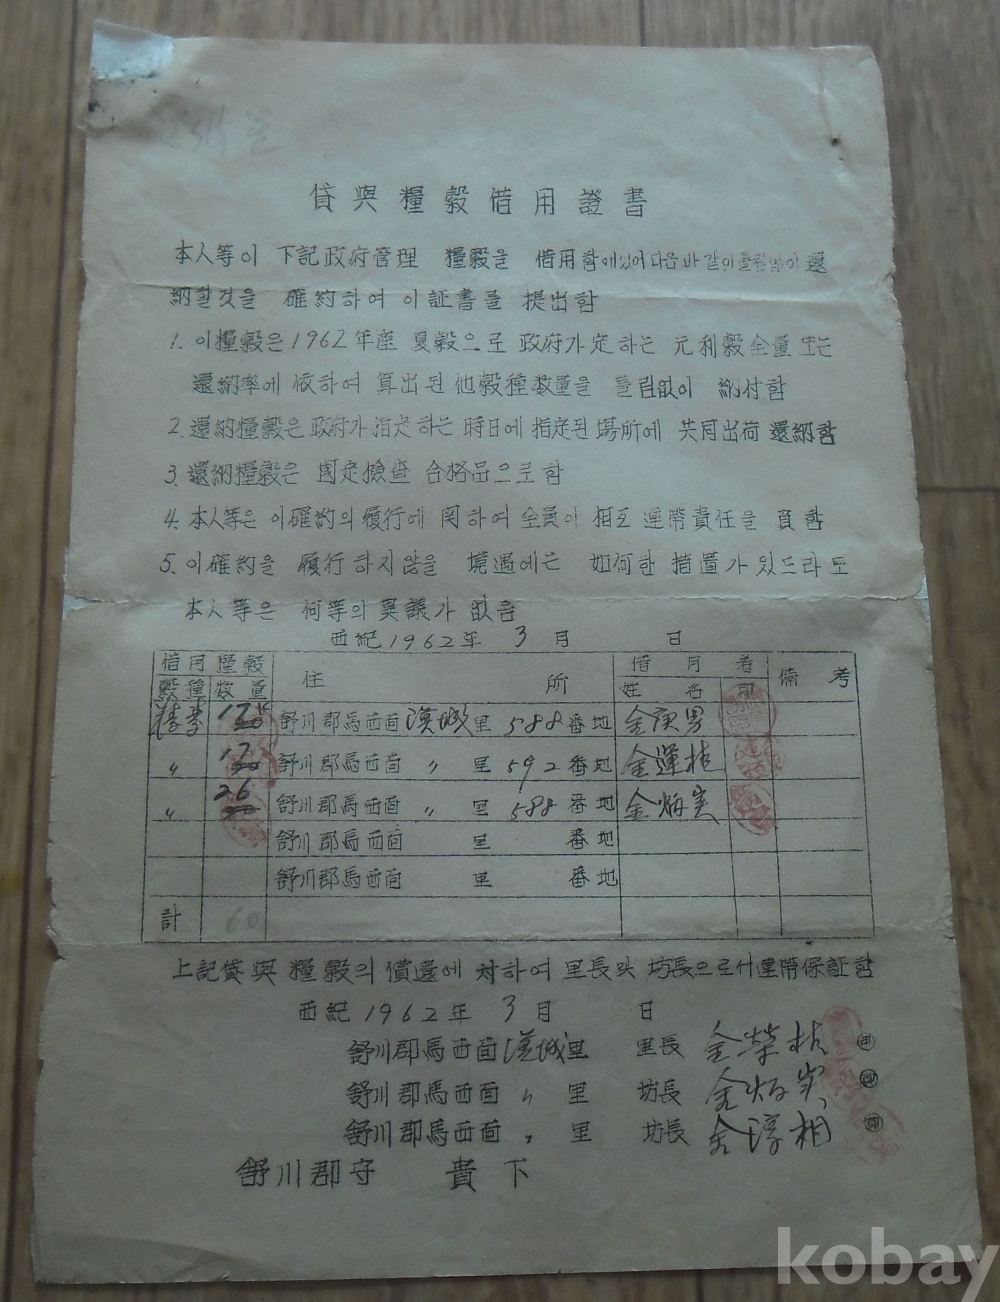 貸與糧穀借用證書
本人等이 下記政府管理 糧穀을 借用함에있어 다음바같이 틀림없이 還
納할것을 確約하여 이証書를 提出함
1. 이糧穀은 1962年産 夏穀으로 政府가定하는 元利穀全量 또는
還納率에 依하여 算出된 他穀種数量을 틀림없이 納付함
2. 還納糧穀은 政府가 指定하는 時日에 指定된 場所에 共同出荷 還納함
3. 還納糧穀은 國定檢査 合格品으로함
4. 本人等은 이確約의 履行에 関하여 全員이 相互 連帶責任을 負함
5. 이確約을 履行하지않을 境遇에는 如何한 措置가 있드라도
本人等은 何等의 異議가 없음
西紀 1962年 3月 日
借用糧穀 住 所 借用者 備考
穀種 数量 姓名 印
17K 舒川郡馬西面 漢城里 588番地 金庚男
〃 17 舒川郡馬西面 〃 里 592番地 金運植
〃 26 舒川郡馬西面 〃 里 588番地 金炳寅
舒川郡馬西面 里 番地
舒川郡馬西面 里 番地
計 60
上記貸與糧穀의 償還에 対하여 里長및 坊長으로서 連帶保証함
西紀 1962年 3月 日
舒川郡馬西面 漢城里 里長 金榮植 ㊞
舒川郡馬西面 〃 里 坊長 金炳寅 ㊞
舒川郡馬西面 〃 里 坊長 金淳相 ㊞
舒川郡守 貴下
kobay